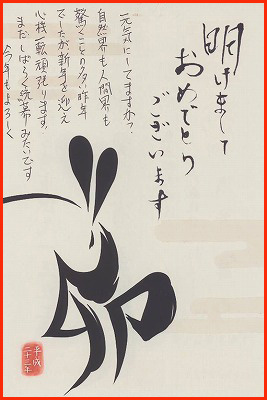 明けまして
おめでとう
ございます
元気にしてますか?
自然界も人間界も
驚くことの多い昨年
でしたが新年を迎え
心機一転頑張ります
まだしばらく沈黙みたいです
今年もよろしく
卯
平成
二十三年